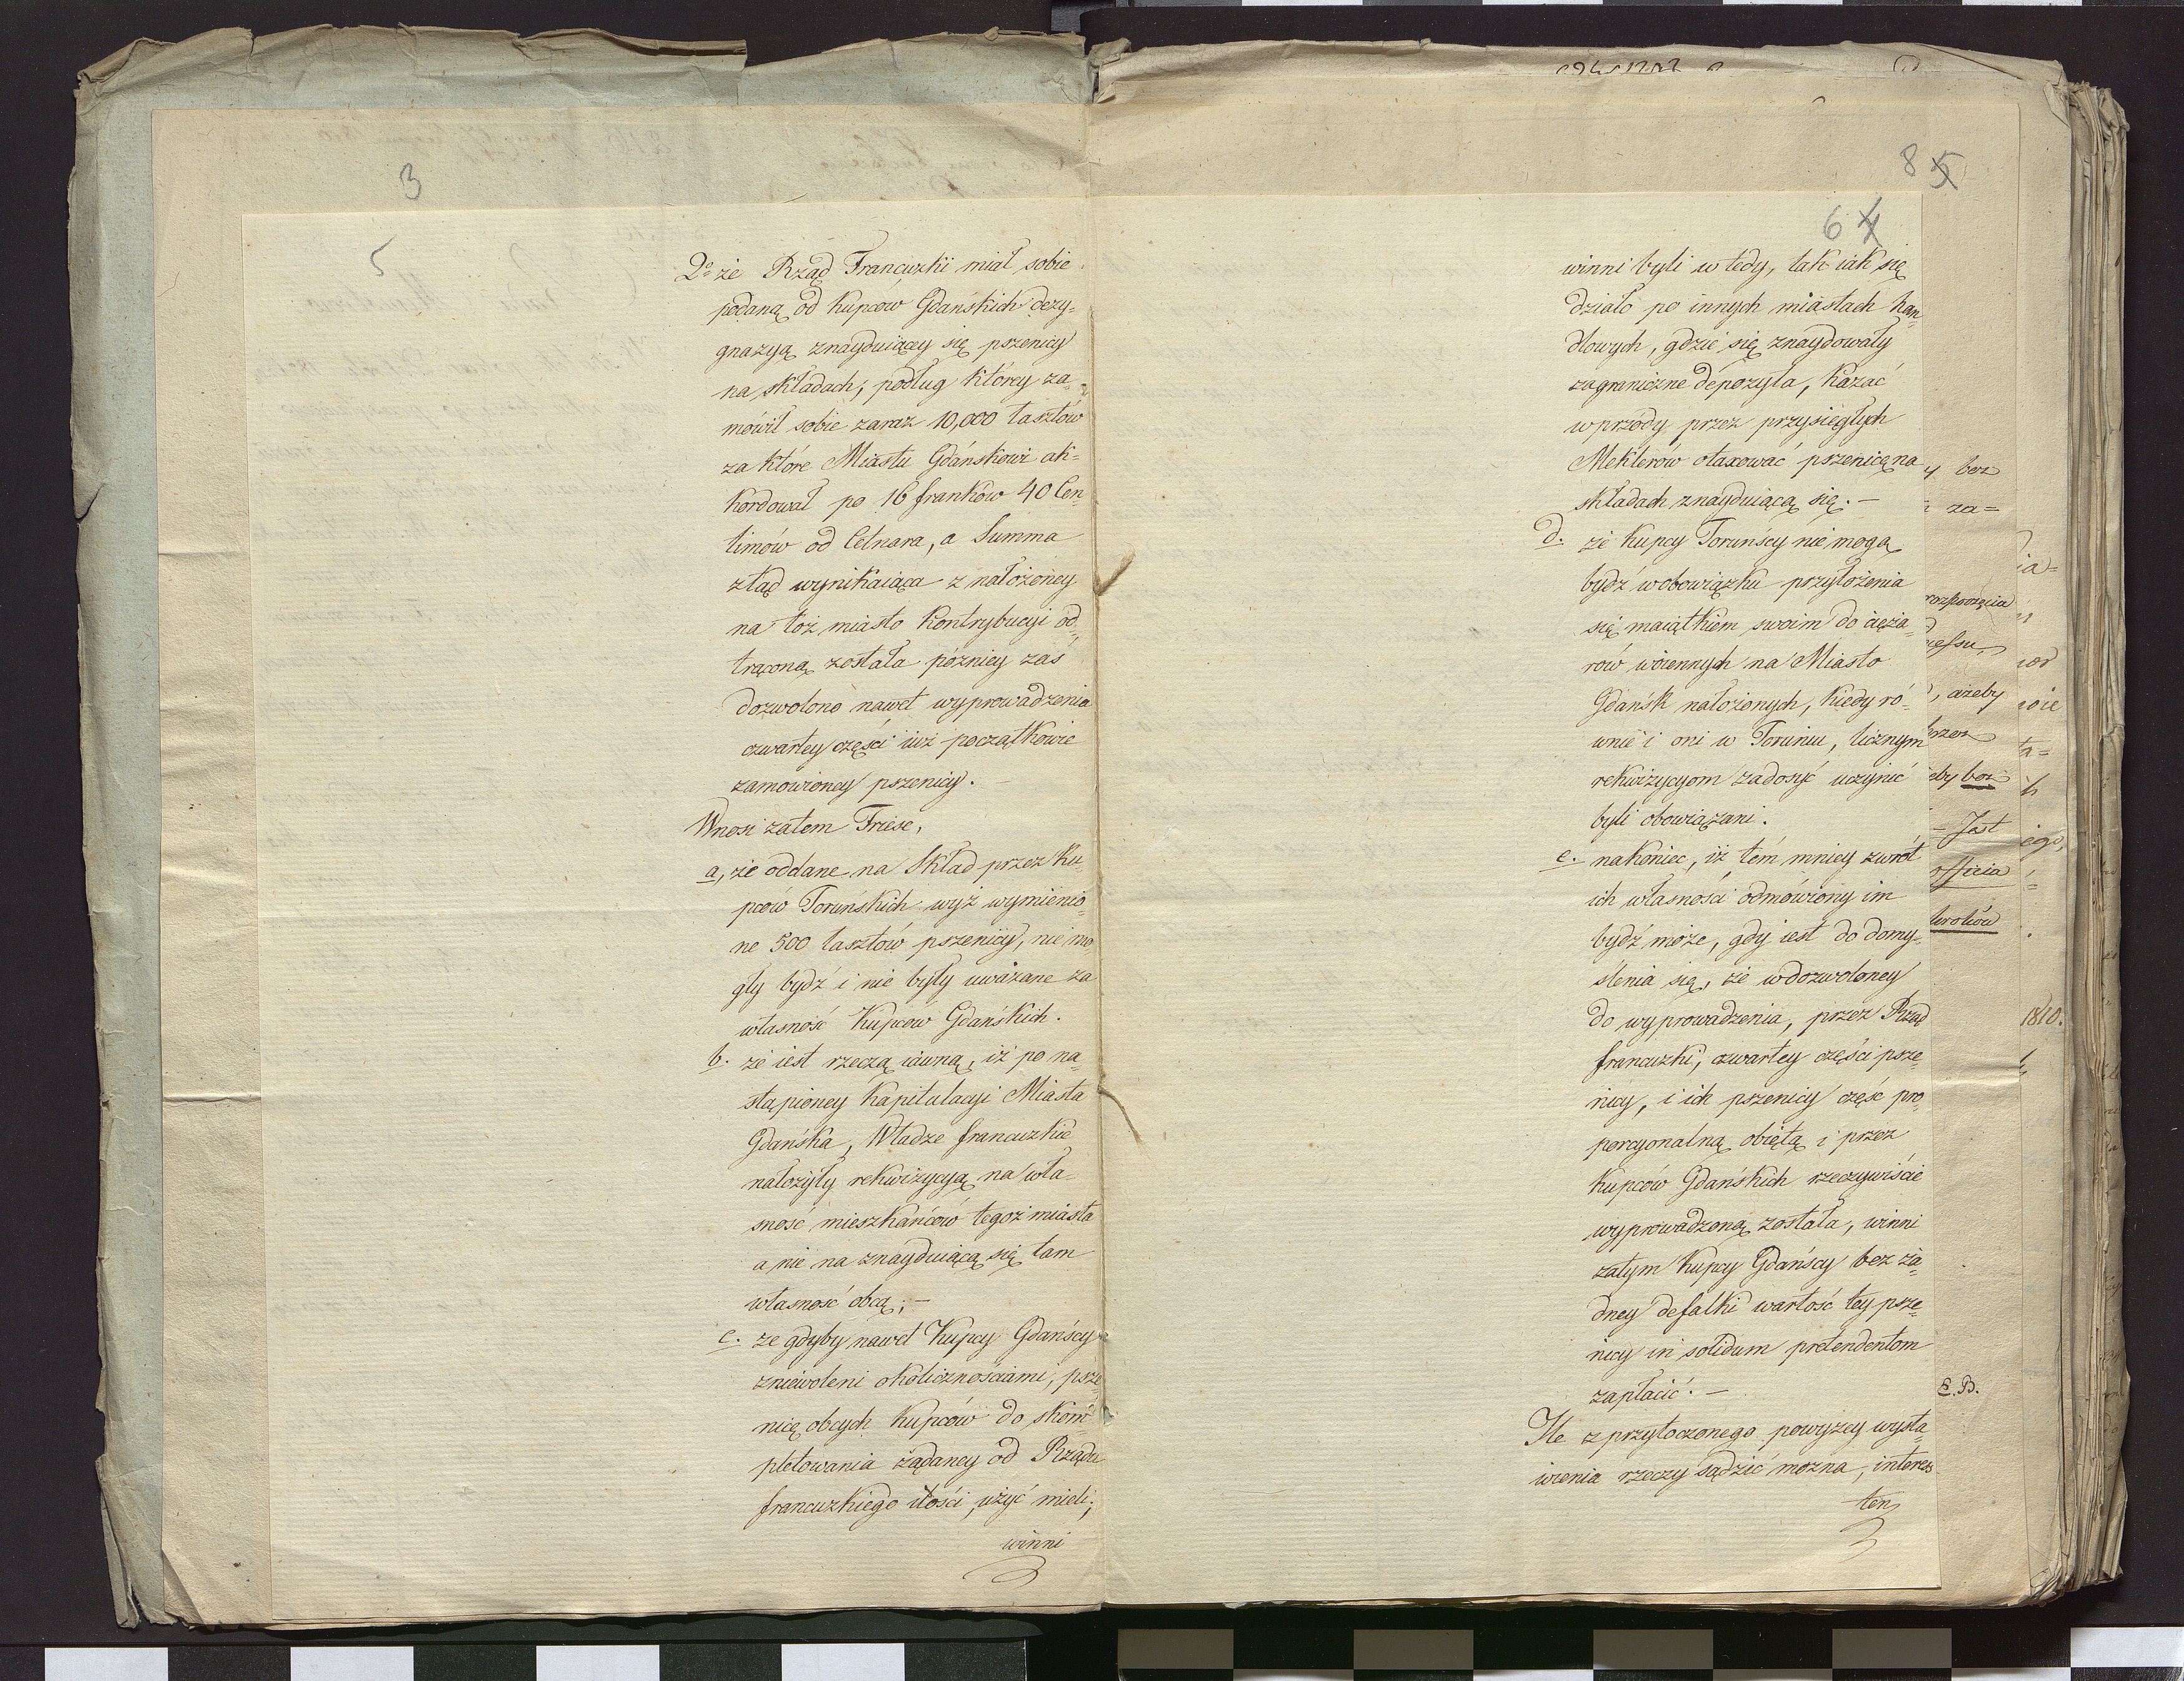 3
5
2o że Rząd Francuzki miał sobie
podaną od Kupców Gdańskich dezy=
gnazyą znayduiącey się pszenicy
na składach, podług którey za=
mówił sobie zaraz 10,000 łasztów
za które Miastu Gdańskowi ak=
kordował po 16 franków 40 Cen
timów od Cetnara, a Summa
ztąd wynikaiąca z nałożoney
na toż miasto Kontrybucyi od=
trąconą została późniey zaś
dozwolono nawet wyprowadzenia
czwartey części iuż początkowie
zamówioney pszenicy. –
Wnosi zatem Friese,
a, że oddane na Skład przez Ku=
pców Toruńskich wyż wymienio=
ne 500 łasztów pszenicy, nie mo
gły bydź i nie były uważane za
własność Kupców Gdańskich.
b. że iest rzeczą iawną, iż po na=
stąpioney Kapitulacyi Miasta
Gdańska, Władze francuzkie
nałożyły rekwizycyą na wła=
sność mieszkańców tegoż miasta
a nie na znayduiącą się tam
własność obcą; –
c. że gdyby nawet Kupcy Gdańscy
zniewoleni okolicznościami, psze=
nicę obcych Kupców do skom=
pletowania żądaney od Rządu
francuzkiego ilości, użyć mieli;
winni
8 5
6 4
winni byli wtedy, tak iak się
działo po innych miastach han=
dlowych, gdzie się znaydowały
zagraniczne depozyta, kazać
wprzódy przez przysięgłych
Meklerów otaxować pszenicę na
składach znayduiącą się. –
d. że Kupcy Toruńscy nie mogą
bydź w obowiązku przyłożenia
się maiątkiem swoim do cięża=
rów woiennych na Miasto
Gdańsk nałożonych, kiedy ró=
wnie i oni w Toruniu, licznym
rekwizycyom zadosyć uczynić
byli obowiązani.
e. nakoniec, iż tém mniey zwrót
ich własności odmówiony im
bydź może, gdy iest do domy=
ślenia się, że w dozwoloney
do wyprowadzenia, przez Rząd
francuzki, czwartey części psze
nicy, i ich pszenicy część pro=
porcyonalną obiętą i przez
Kupców Gdańskich rzeczywiście
wyprowadzoną została, winni
zatym Kupcy Gdańscy bez ża=
dney defalki wartość tey psze=
nicy in solidum pretendentom
zapłacić. –
Ile z przytoczonego powyżey wysta=
wienia rzeczy sądzić można, interes
ten
bez
za=
, ażeby
bez
– Jest
officia
E. B.
1810.